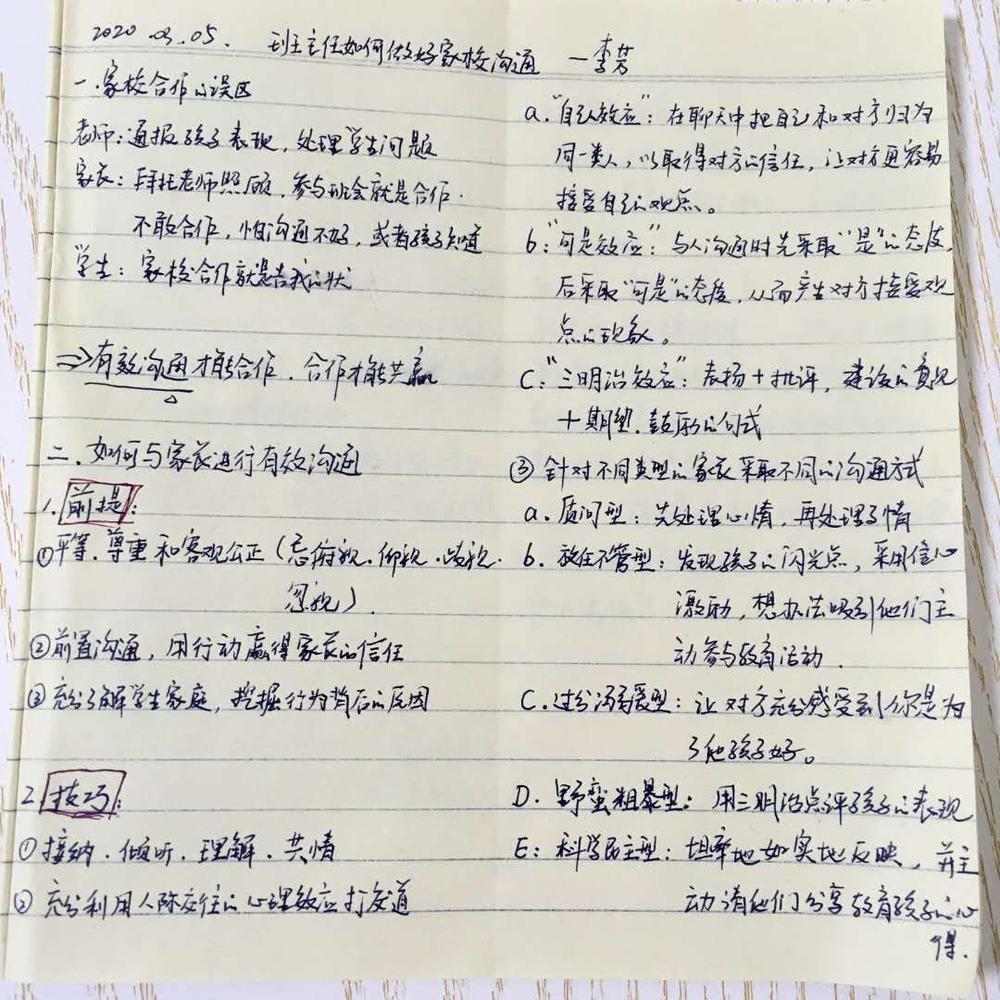 2020.03.05. 班主任如何做好家校沟通 —李芳
一.家校合作的误区
老师:通报孩子表现,处理学生问题
家长:拜托老师照顾,参与班会就是合作.
不敢合作,怕沟通不好,或者孩子知道
学生:家校合作就是告我的状
⇒有效沟通才能合作.合作才能共赢
二.如何与家长进行有效沟通
1.前提:
①平等.尊重和客观公正(忌俯视.仰视.歧视.
忽视).
②前置沟通,用行动赢得家长的信任
③充分了解学生家庭,挖掘行为背后的原因
2.技巧:
①接纳.倾听.理解.共情
②充分利用人际交往的心理效应打交道
a."自己人效应":在聊天中把自己和对方归为
同一类人,以取得对方的信任,让对方更容易
接受自己的观点。
b:"可是效应":与人沟通时先采取"是"的态度,
后采取"可是"的态度,从而产生对方接受观
点的现象。
C:"三明治效应":表扬+批评,建设的意见
+期望.鼓励的句式
③针对不同类型的家长采取不同的沟通方式
a.质问型:先处理心情,再处理事情
b.放任不管型:发现孩子的闪光点,采用信心
激励,想办法吸引他们主
动参与教育活动.
C.过分溺爱型:让对方充分感受到你是为
了他孩子好。
D.野蛮粗暴型:用三明治点评孩子的表现
E:科学民主型:坦率地如实地反映,并主
动请他们分享教育孩子的心
得.